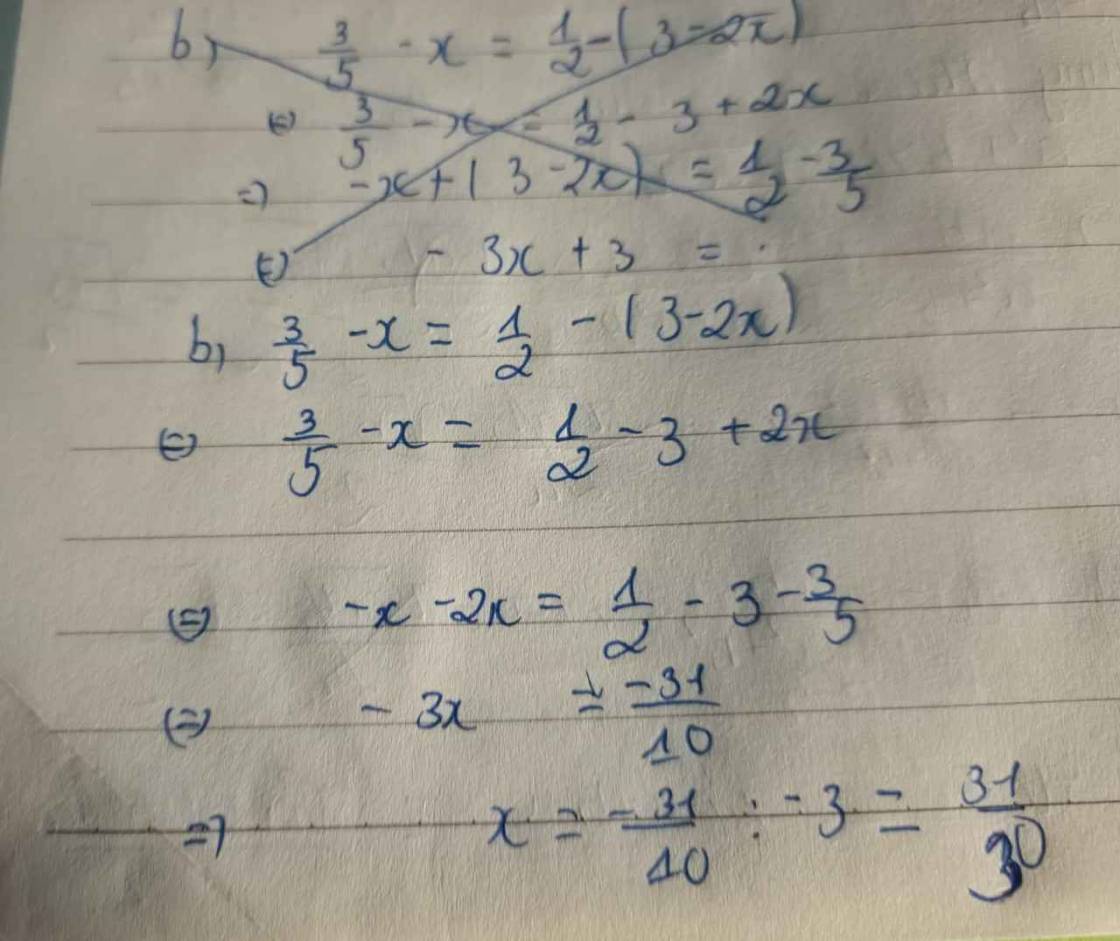 b, 3/5 - x = 1/2 - (3 - 2x)
⇔ 3/5 - x = 1/2 - 3 + 2x
⇒ -x + (3 - 2x) = 1/2 - 3/5
⇔ - 3x + 3 = .
b, 3/5 - x = 1/2 - (3 - 2x)
⇔ 3/5 - x = 1/2 - 3 + 2x
⇔ -x - 2x = 1/2 - 3 - 3/5
⇔ - 3x = -31/10
⇒ x = -31/10 : -3 = 31/30